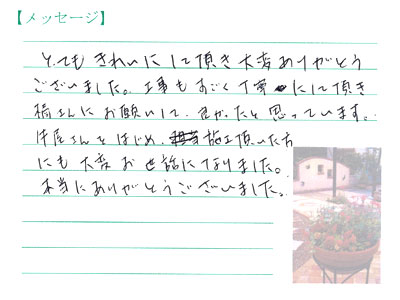 【メッセージ】
とてもきれいにして頂き大変ありがとう
ございました。工事もすごく丁寧にして頂き
橘さんにお願いして、良かったと思っています。
屋さんをはじめ、施工頂いた方
にも大変お世話になりました。
本当にありがとうございました。